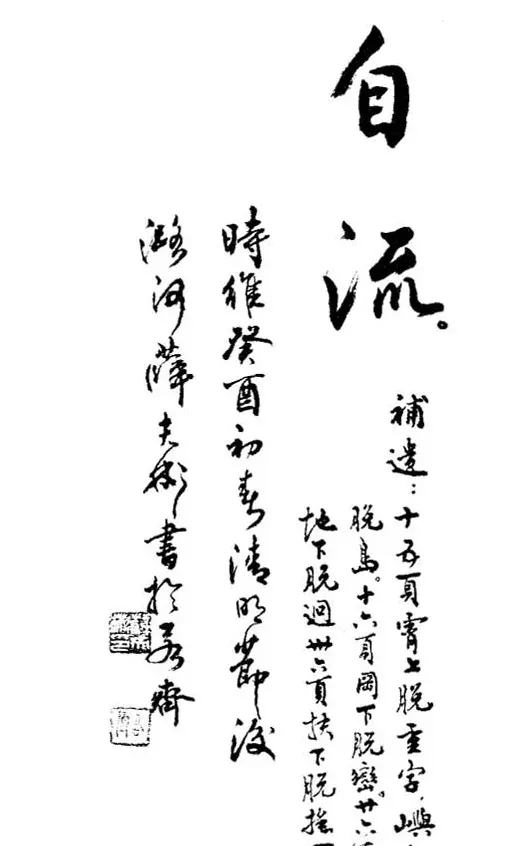 自流。
補遺：十五頁霄上脫重字，嶼
脫島。十六頁岡下脫巒。廿六
地下脫迴卅六頁扶下脫搖
時維癸酉初春清明節後
潞河薛夫彬書於若齋